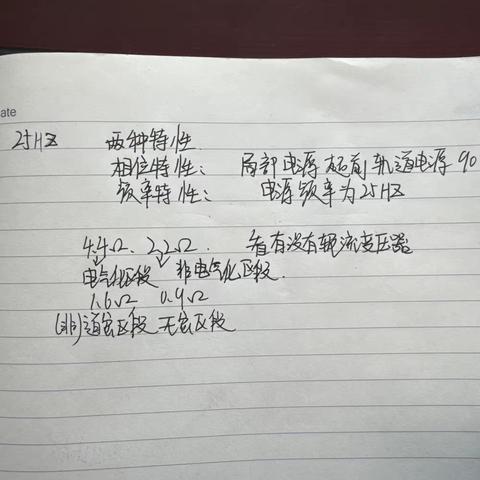 ate
25HZ 两种特性
相位特性: 局部电源超前轨道电源90
频率特性: 电源频率为25HZ
4.4Ω、2.2Ω. 看有没有轭流变压器
电气化区段 非电气化区段.
1.6Ω 0.9Ω
(非)道岔区段 无岔区段